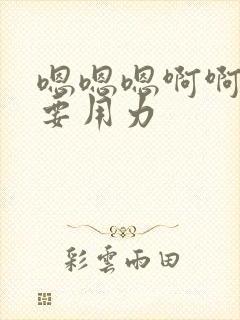 嗯嗯嗯啊啊
要用力
彩雲雨田